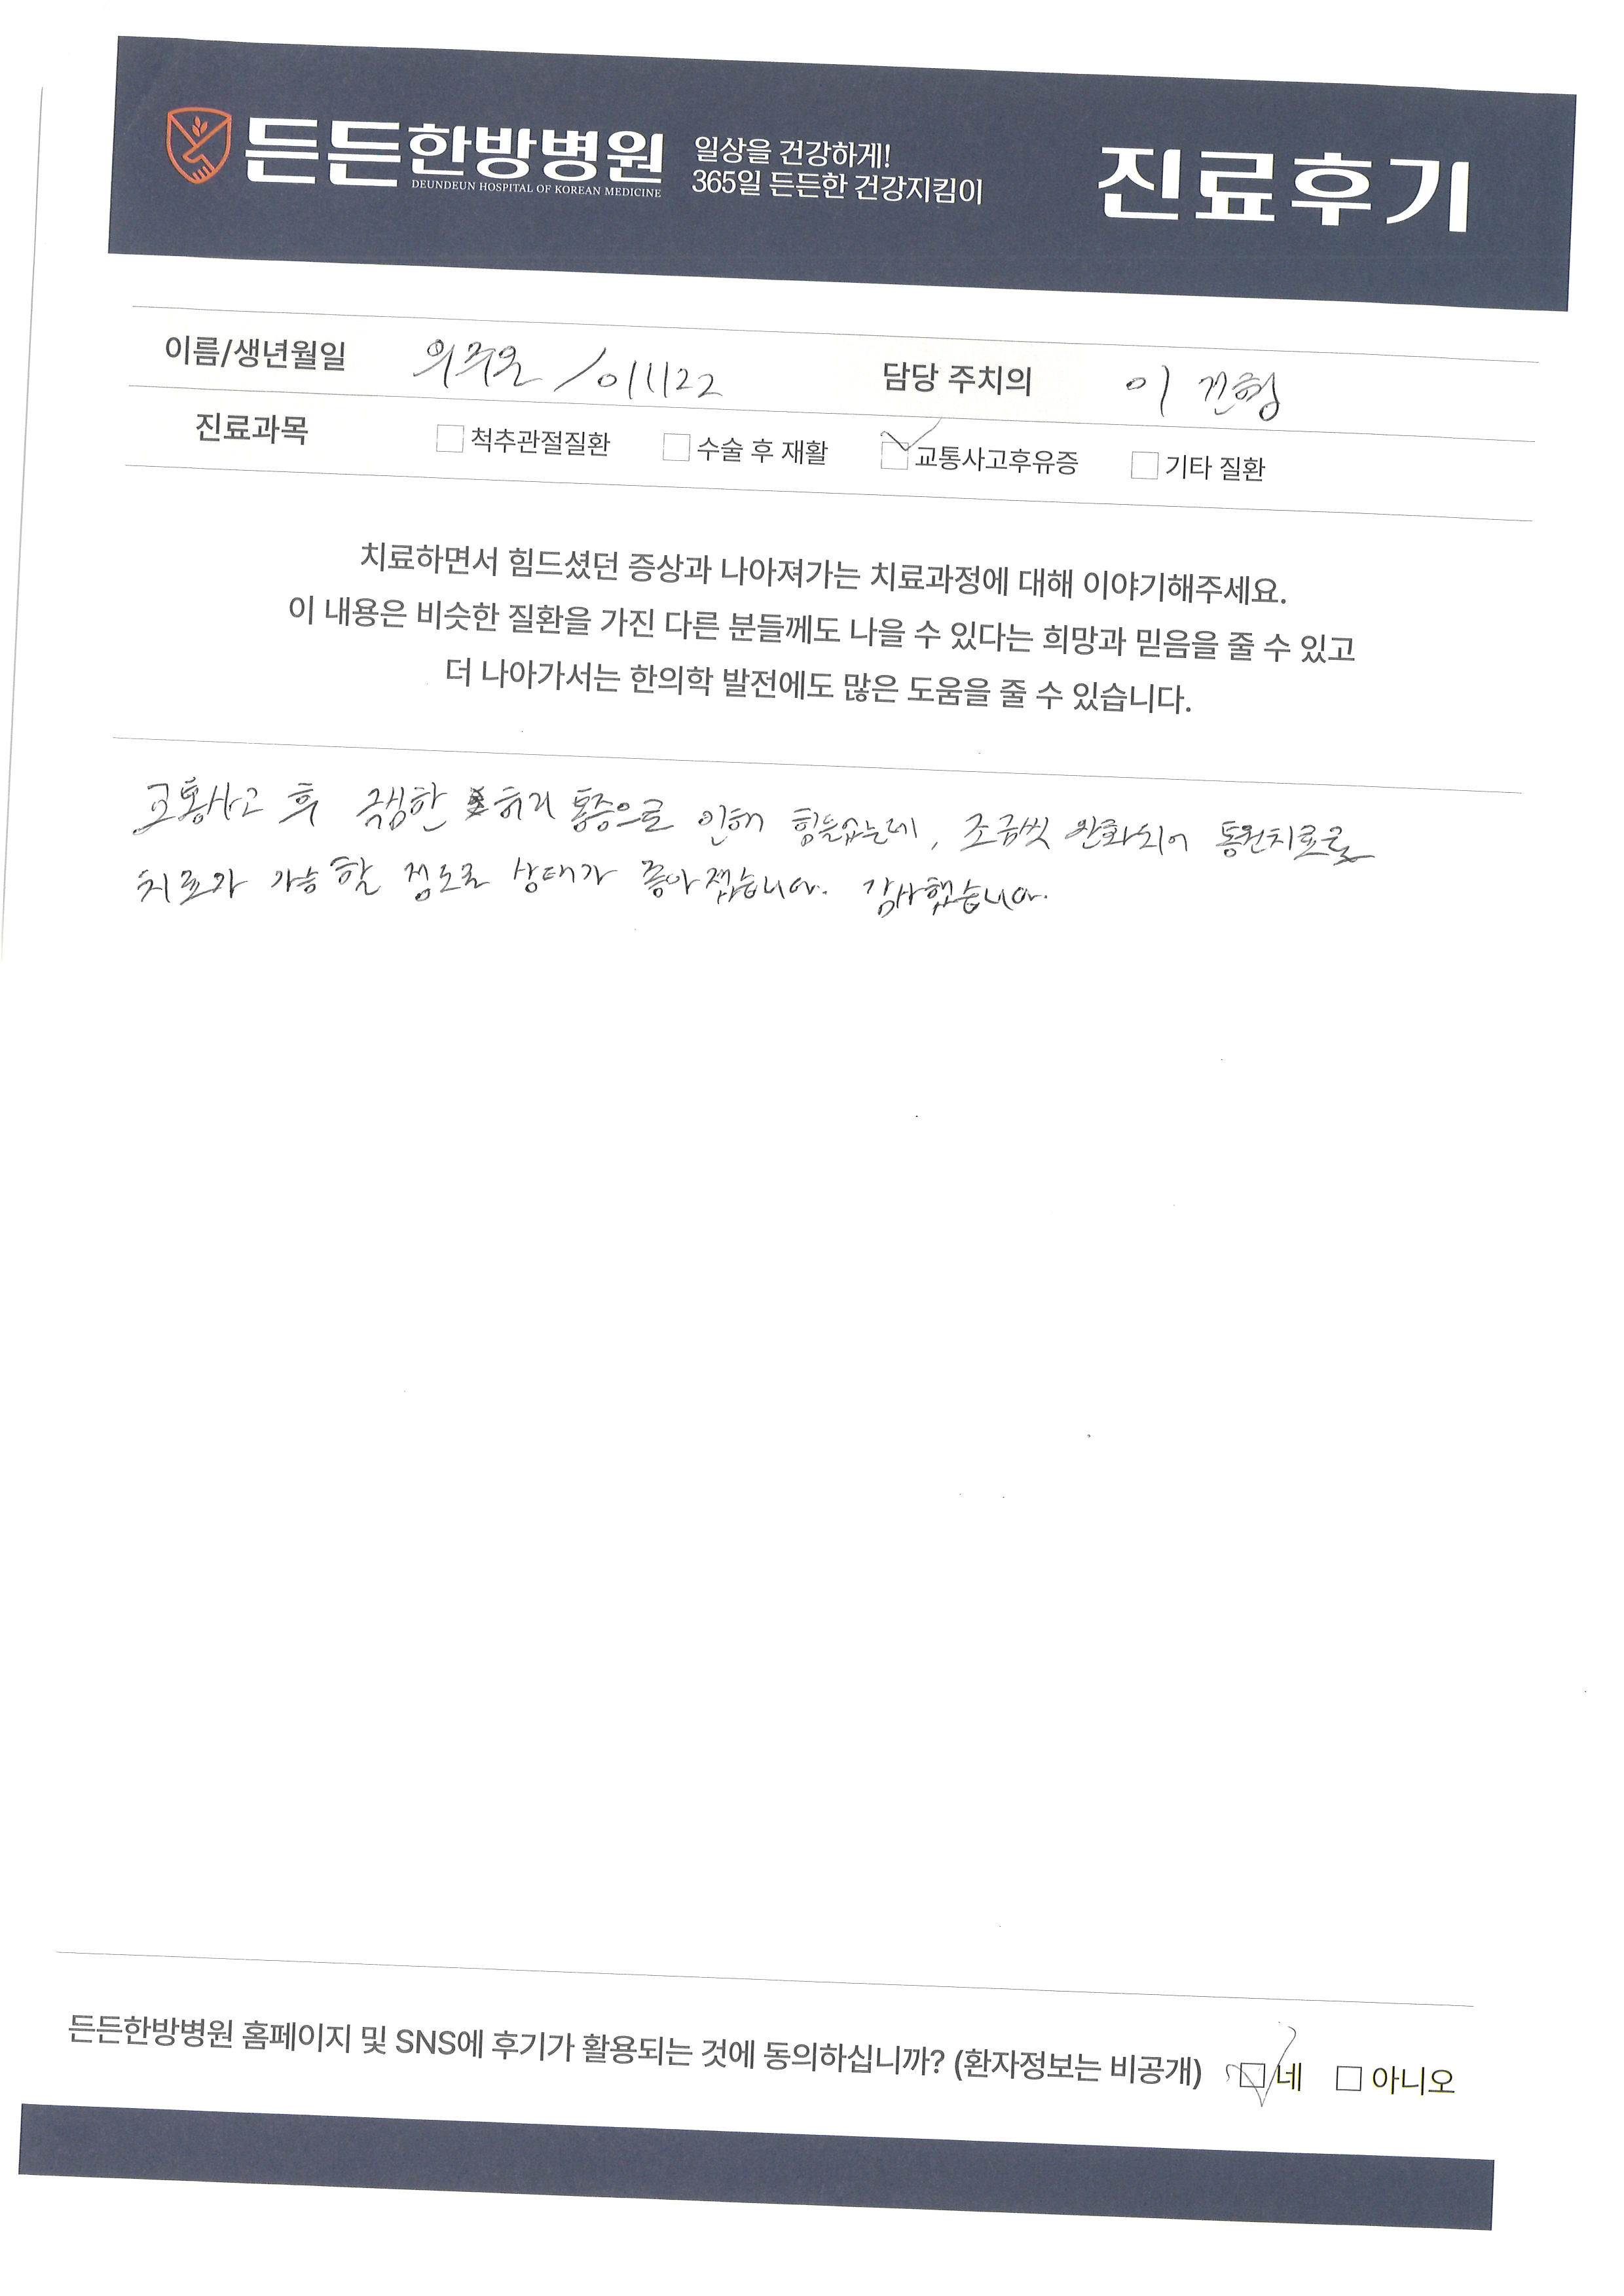 든든한방병원
DEUNDEUN HOSPITAL OF KOREAN MEDICINE
일상을 건강하게!
365일 든든한 건강지킴이
진료후기
이름/생년월일 / 011122 담당 주치의 이
진료과목 척추관절질환 수술 후 재활 교통사고후유증 기타 질환
치료하면서 힘드셨던 증상과 나아져가는 치료과정에 대해 이야기해주세요.
이 내용은 비슷한 질환을 가진 다른 분들께도 나을 수 있다는 희망과 믿음을 줄 수 있고
더 나아가서는 한의학 발전에도 많은 도움을 줄 수 있습니다.
교통사고 후 극심한 허리 통증으로 인해 힘들었는데, 조금씩 완화되어 통원치료로
치료가 가능할 정도로 상태가 좋아졌습니다. 감사했습니다.
든든한방병원 홈페이지 및 SNS에 후기가 활용되는 것에 동의하십니까? (환자정보는 비공개) 네 아니오